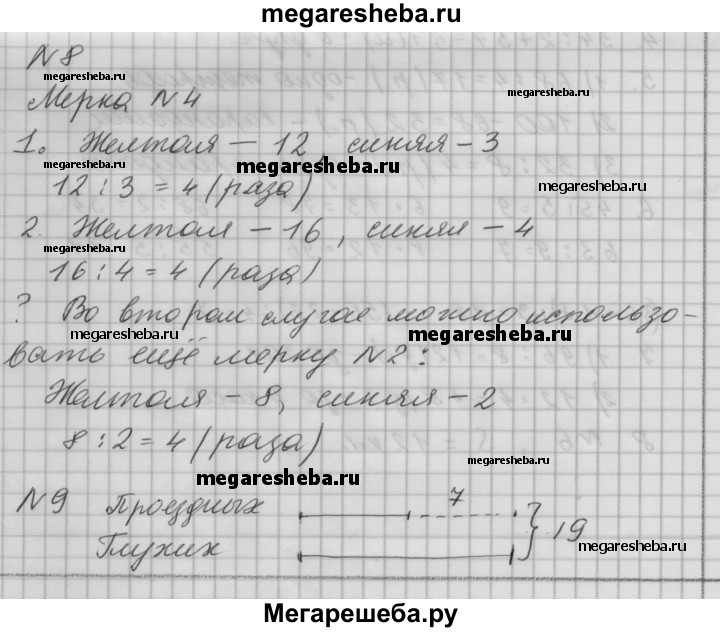 megaresheba.ru
N8
megaresheba.ru
Мерка N4
megaresheba.ru
1. Желтая – 12, синяя – 3
megaresheba.ru
megaresheba.ru
12 : 3 = 4 (раза)
megaresheba.ru
2. Желтая – 16, синяя – 4
megaresheba.ru
16 : 4 = 4 (раза)
? Во втором случае можно использо-
megaresheba.ru
megaresheba.ru
вать ещё мерку N2:
Желтая – 8, синяя – 2
8 : 2 = 4 (раза)
megaresheba.ru
megaresheba.ru
N9 Проездных 7
Глухих 19
megaresheba.ru
megaresheba.ru
Мегарешеба.ру